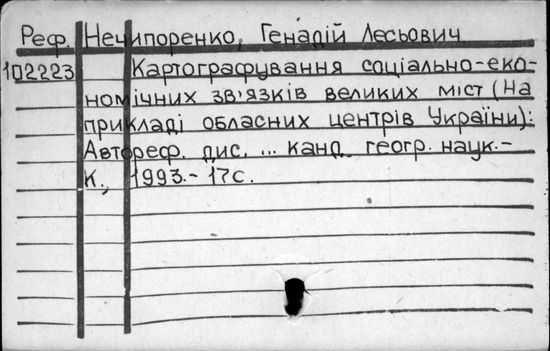 Реф. Нечипоренко, Генадій Лесьович
102223 Картографування соціально-еко-
номічних зв'язків великих міст (на
прикладі обласних центрів України):
Автореф. дис. ... канд. геогр. наук.-
К., 1993.- 17с.